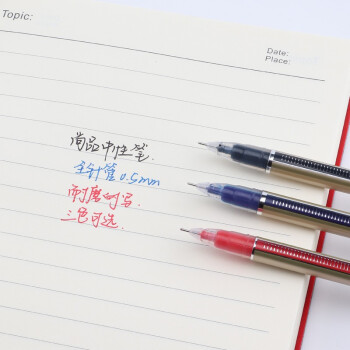 Topic:
Date:
Place:
尚品中性笔.
全针管0.5mm
耐磨好写
三色可选.